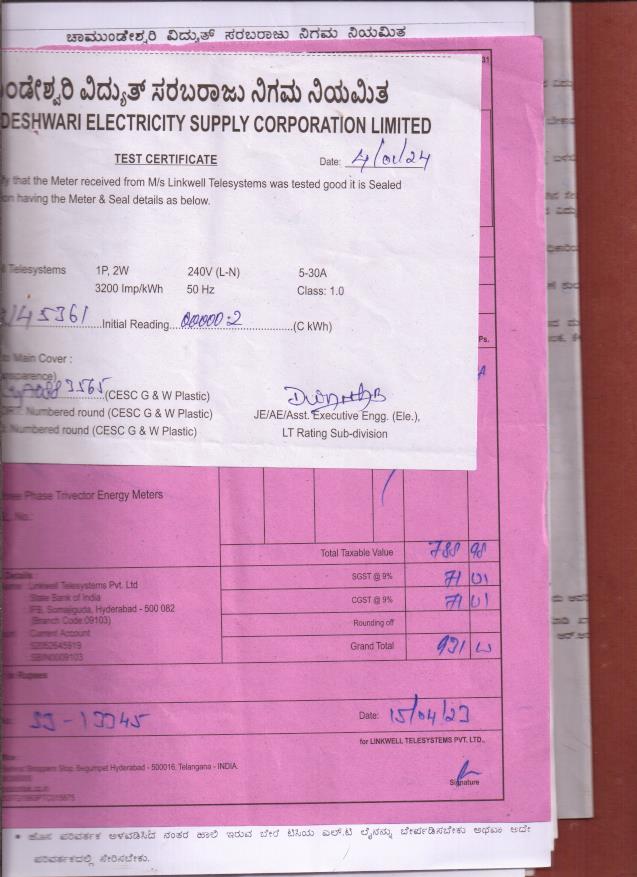 ಚಾಮುಂಡೇಶ್ವರಿ ವಿದ್ಯುತ್ ಸರಬರಾಜು ನಿಗಮ ನಿಯಮಿತ
ುಂಡೇಶ್ವರಿ ವಿದ್ಯುತ್ ಸರಬರಾಜು ನಿಗಮ ನಿಯಮಿತ
DESHWARI ELECTRICITY SUPPLY CORPORATION LIMITED
TEST CERTIFICATE Date: 4/01/24
fy that the Meter received from M/s Linkwell Telesystems was tested good it is Sealed
on having the Meter & Seal details as below.
Telesystems 1P, 2W 240V (L-N) 5-30A
3200 Imp/kWh 50 Hz Class: 1.0
45361 Initial Reading 00000:2 (C kWh)
to Main Cover :
3565 (CESC G & W Plastic)
Numbered round (CESC G & W Plastic) JE/AE/Asst. Executive Engg. (Ele.),
Numbered round (CESC G & W Plastic) LT Rating Sub-division
Ps.
Phase Trivector Energy Meters
No.:
Total Taxable Value 788 98
SGST @ 9% 71 01
CGST @ 9% 71 01
Rounding off
Grand Total 931
Details
Linkwell Telesystems Pvt. Ltd
State Bank of India
IFB, Somajiguda, Hyderabad - 500 082
(Branch Code:09103)
Current Account
52052645919
SBIN0009103
Rupees
33-13345 Date: 15/04/23
for LINKWELL TELESYSTEMS PVT. LTD.,
Begumpet Hyderabad - 500016, Telangana - INDIA.
Signature
* ಹೊಸ ಪರಿವರ್ತಕ ಅಳವಡಿಸಿದ ನಂತರ ಹಾಲಿ ಇರುವ ಬೇರೆ ಟಿಸಿಯ ಎಲ್.ಟಿ ಲೈನನ್ನು ಬೇರ್ಪಡಿಸಬೇಕು ಅಥವಾ ಅದೇ
ಪರಿವರ್ತಕದಲ್ಲಿ ಸೇರಿಸಬೇಕು.